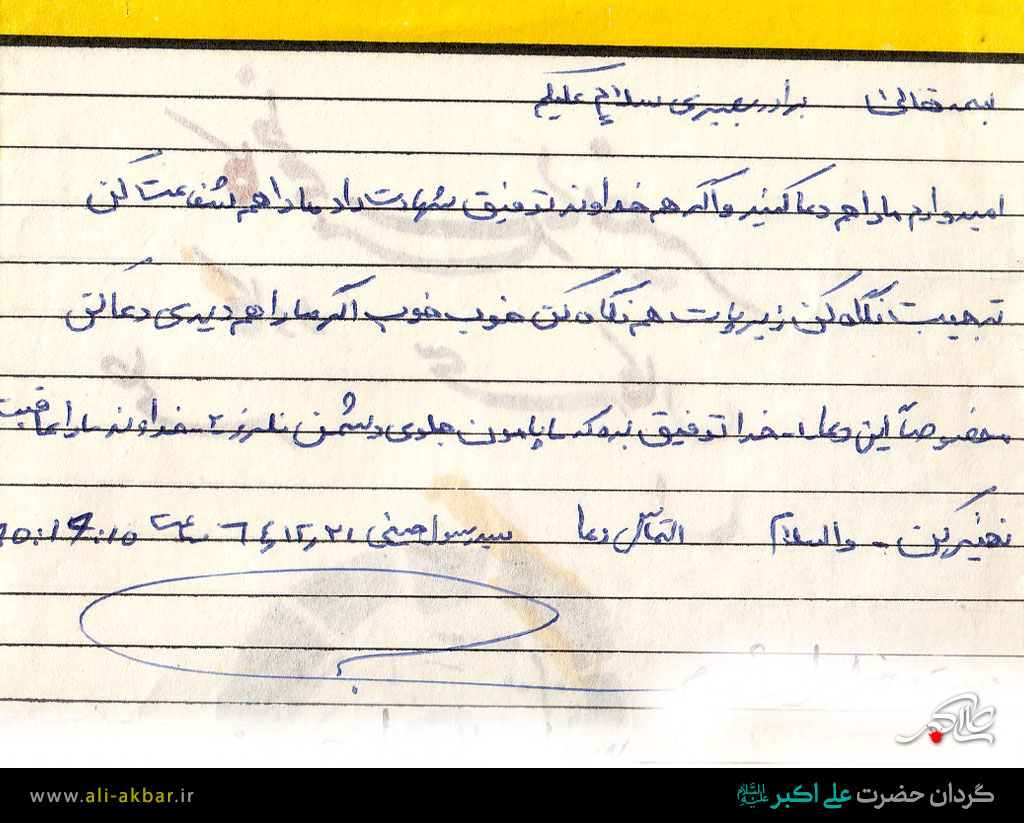 بسمه تعالی برادر بصیری سلام علیکم
امیدوارم ما را هم دعا کنید و اگر هم خداوند توفیق شهادت داد ما را هم شفاعت کن
نگاه کن زیر پات هم نگاه کن خوب خوب اگر ما را هم دیدی دعا کن
مخصوصاً این دعا ۱- خدا توفیق بده که ما پامون جلوی دشمن نلرزد ۲- خداوند ما را عاقبت
والسلام التماس دعا سید رسول حسینی ۶۴،۱۲،۲۱
علی اکبر
www.ali-akbar.ir گردان حضرت علی اکبر علیه السلام